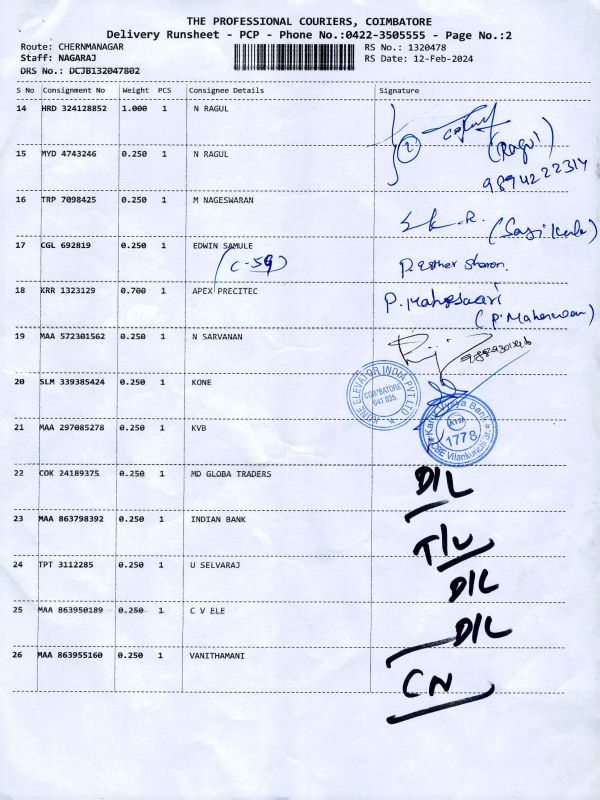 THE PROFESSIONAL COURIERS, COIMBATORE
Delivery Runsheet - PCP - Phone No.:0422-3505555 - Page No.:2
Route: CHERNMANAGAR RS No.: 1320478
Staff: NAGARAJ RS Date: 12-Feb-2024
DRS No.: DCJB132047802
S No Consignment No Weight PCS Consignee Details Signature
14 HRD 324128852 1.000 1 N RAGUL
(2) (Ragul)
15 MYD 4743246 0.250 1 N RAGUL
9894222314
16 TRP 7098425 0.250 1 M NAGESWARAN
S.K.R.
17 CGL 692819 0.250 1 EDWIN SAMULE
(C-59) P. Esther Sharon.
18 KRR 1323129 0.700 1 APEX PRECITEC P. Maheswari
19 MAA 572301562 0.250 1 N SARVANAN
20 SLM 339385424 0.250 1 KONE
KONE ELEVATOR INDIA PVT LTD
COIMBATORE
641 035.
21 MAA 297085278 0.250 1 KVB
Karur Vysya Bank
KVB
1778
22 COK 24189375 0.250 1 MD GLOBA TRADERS D/L
23 MAA 863798392 0.250 1 INDIAN BANK
T/L
24 TPT 3112285 0.250 1 U SELVARAJ D/L
25 MAA 863950189 0.250 1 C V ELE
D/L
26 MAA 863955160 0.250 1 VANITHAMANI
CN